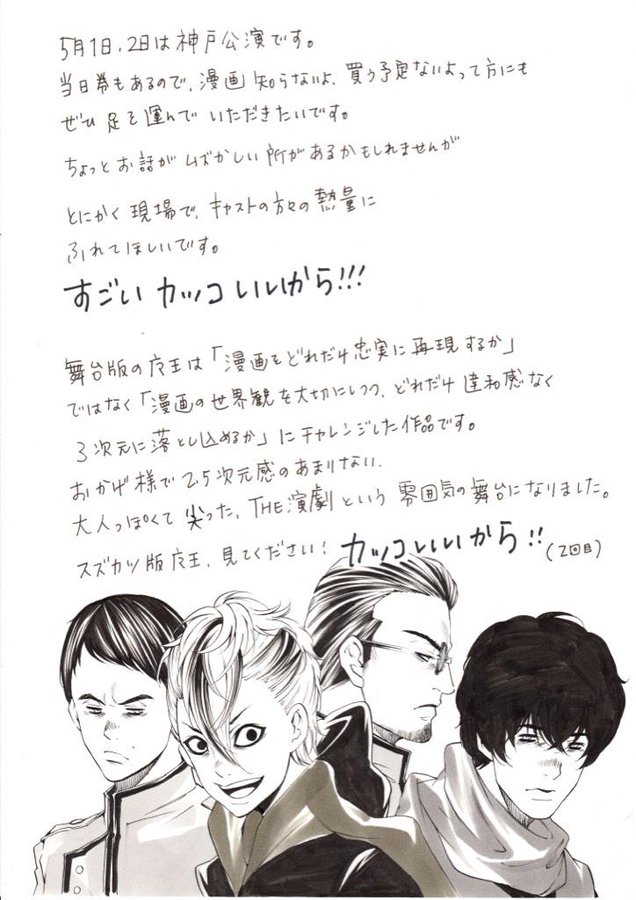 5月1日、2日は神戸公演です。
当日券もあるので、漫画知らないよ、買う予定ないよって方にも
ぜひ足を運んでいただきたいです。
ちょっとお話がムズかしい所があるかもしれませんが
とにかく現場で、キャストの方々の熱量に
ふれてほしいです。
すごいカッコいいから!!!
舞台版の灰王は「漫画をどれだけ忠実に再現するか」
ではなく「漫画の世界観を大切にしつつ、どれだけ違和感なく
3次元に落とし込めるか」にチャレンジした作品です。
おかげ様で2.5次元感のあまりない、
大人っぽくて尖った、THE演劇という雰囲気の舞台になりました。
スズカツ版灰王、見てください! カッコいいから!! (2回目)